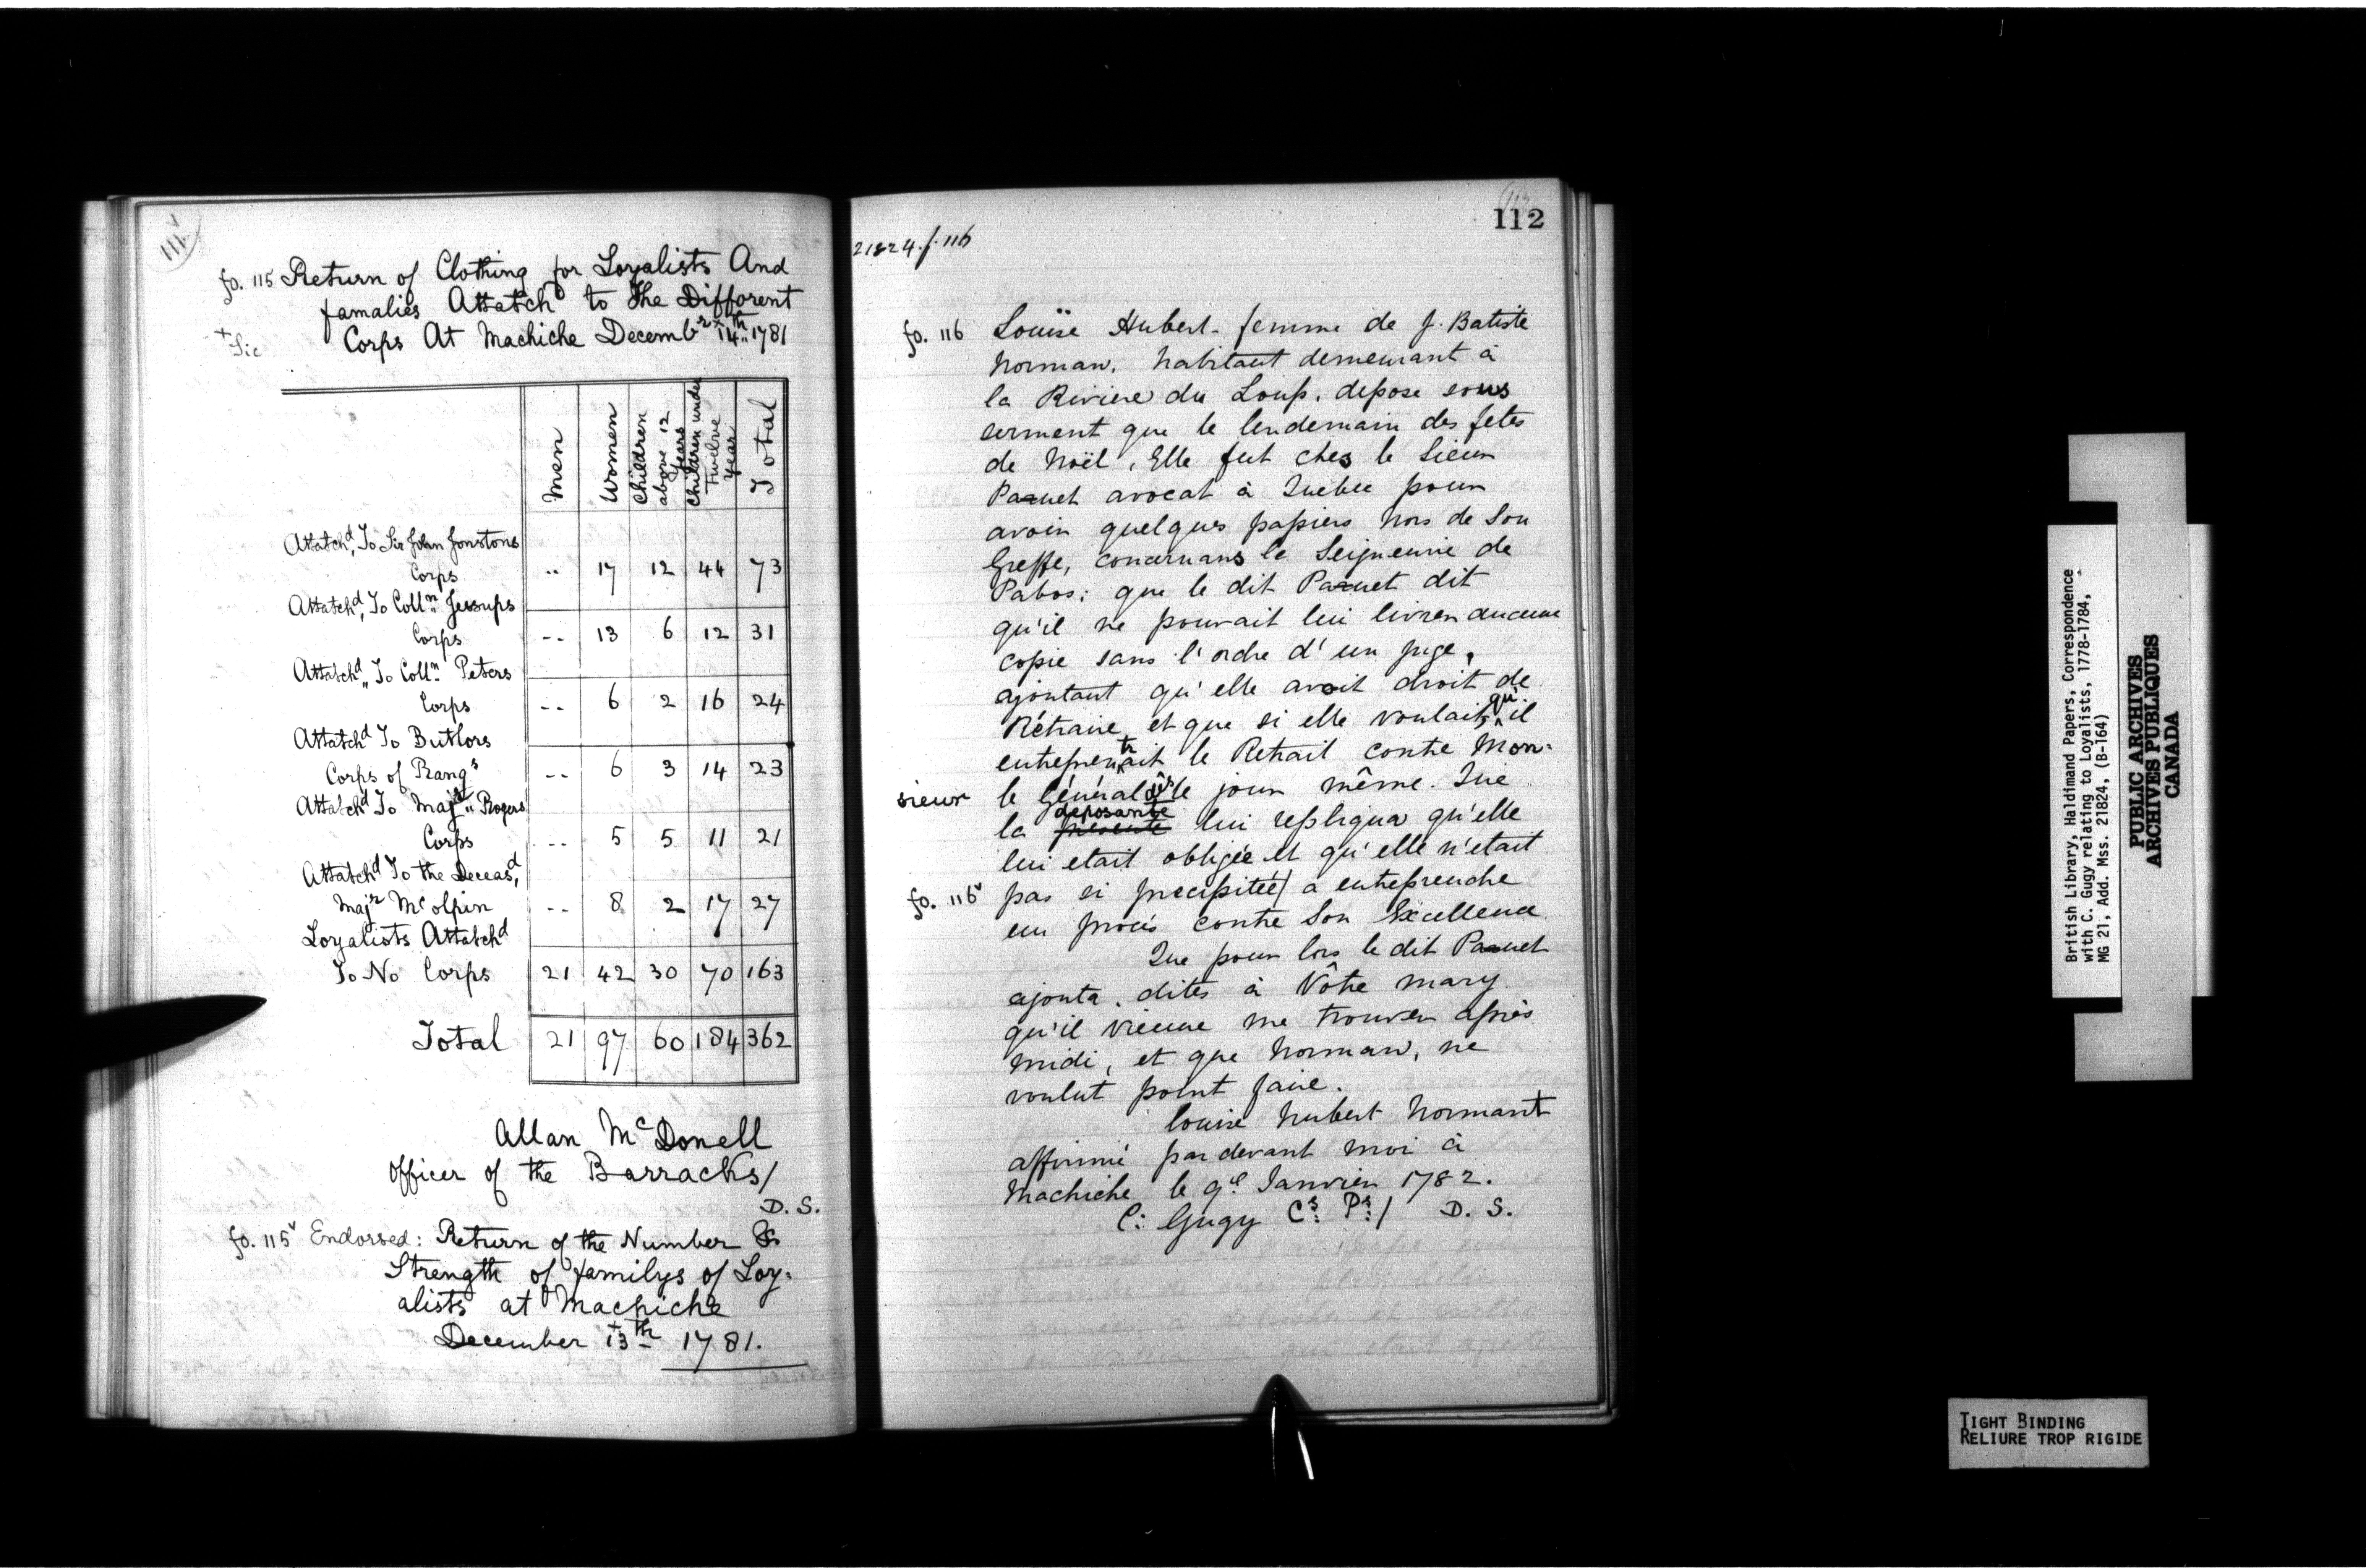 111v
fo. 115 Return of Clothing for Loyalists And
famalies Attatchd to The Different
+ Sic Corps At Machiche Decembr + 14th 1781
Men Women Children above 12 years Children under Twelve year Total
Attatchd To Sir John Jonstons
Corps .. 17 12 44 73
Attatchd To Colln Jessups
Corps -- 13 6 12 31
Attatchd To Colln Peters
Corps -- 6 2 16 24
Attatchd To Butlors
Corps of Rangs -- 6 3 14 23
Attatchd To Majr Rogers
Corps -- 5 5 11 21
Attatchd To the Deceasd
Majr Mc olpin -- 8 2 17 27
Loyalists Attatchd
To No Corps 21 42 30 70 163
Total 21 97 60 184 362
Allan McDonell
Officer of the Barracks/
D. S.
fo. 115v Endorsed: Return of the Number &
Strength of familys of Loy-
alists at Machiche
December + 13th 1781.
112
21824. f. 116
fo. 116 Louïse Hubert femme de J. Batiste
Norman, habitant demeurant à
la Riviere du Loup, depose sous
serment que le lendemain des fetes
de Noël, Elle fut ches le Sieur
Panet avocat à Quebec pour
avoir quelques papiers hors de Son
Greffe, concernans la Seigneurie de
Pabos: que le dit Panet dit
qu'il ne pouvait lui livrer aucune
copie sans l'ordre d'un juge,
ajoutant qu'elle avoit droit de
Rétraire et que si elle voulait, qu'il
entreprentrait le Retrait contre Mon=
sieur le Général dès le jour même. Que
la deposante lui repliqua qu'elle
lui etait obligée et qu'elle n'etait
fo. 116v pas si precipitée/ a entreprendre
un procés contre Son Excellence
Que pour lors le dit Panet
ajouta, dites à Vôtre mary
qu'il vienne me trouver après
midi, et que Norman, ne
voulut point faire.
Louise hubert Normant
affirmé par devant moi à
Machiche le 9e Janvier 1782.
C: Gugy Cs: Ps:/ D. S.
British Library, Haldimand Papers, Correspondence
with C. Gugy relating to Loyalists, 1778-1784,
MG 21, Add. Mss. 21824, (B-164)
PUBLIC ARCHIVES
ARCHIVES PUBLIQUES
CANADA
TIGHT BINDING
RELIURE TROP RIGIDE